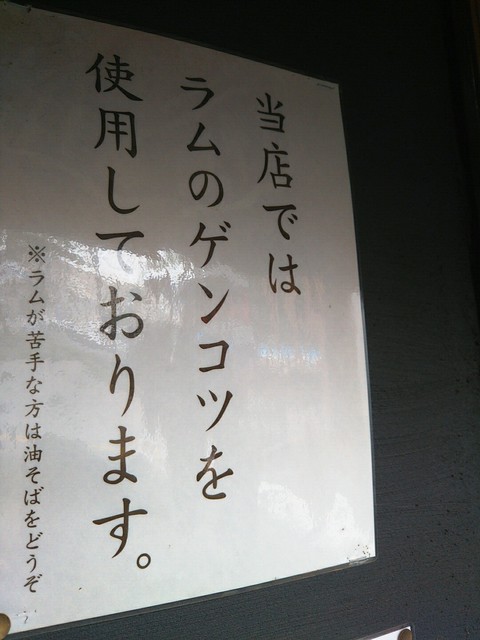 当店では
ラムのゲンコツを
使用しております。
※ラムが苦手な方は油そばをどうぞ